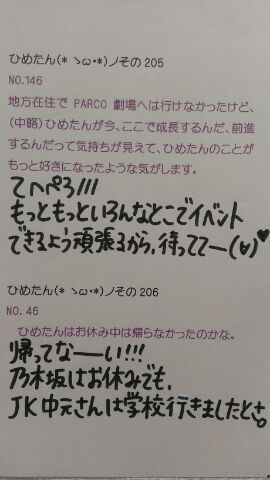 ひめたん(*ゝω・*)ノその205
NO.146
地方在住で PARCO 劇場へは行けなかったけど、
(中略)ひめたんが今、ここで成長するんだ、前進
するんだって気持ちが見えて、ひめたんのことが
もっと好きになったような気がします。
てへぺろ!!!
もっともっといろんなとこでイベント
できるよう頑張るから、待っててー(∀)♥
ひめたん(*ゝω・*)ノその206
NO. 46
ひめたんはお休み中は帰らなかったのかな。
帰ってなーーい!!!
乃木坂はお休みでも、
JK中元さんは学校行きましたとさ。